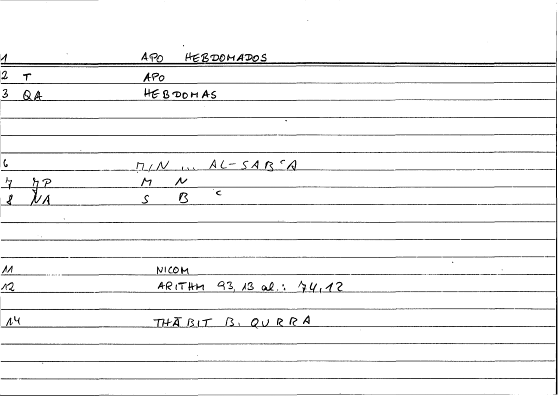 1 APO HEBDOMADOS
2 T APO
3 QA HEBDOMAS
6 MIN ... AL-SABʿA
7 7P M N
8 NA S B ʿ
11 NICOM
12 ARITHM 93,13 al.: 74,12
14 THĀBIT B. QURRA